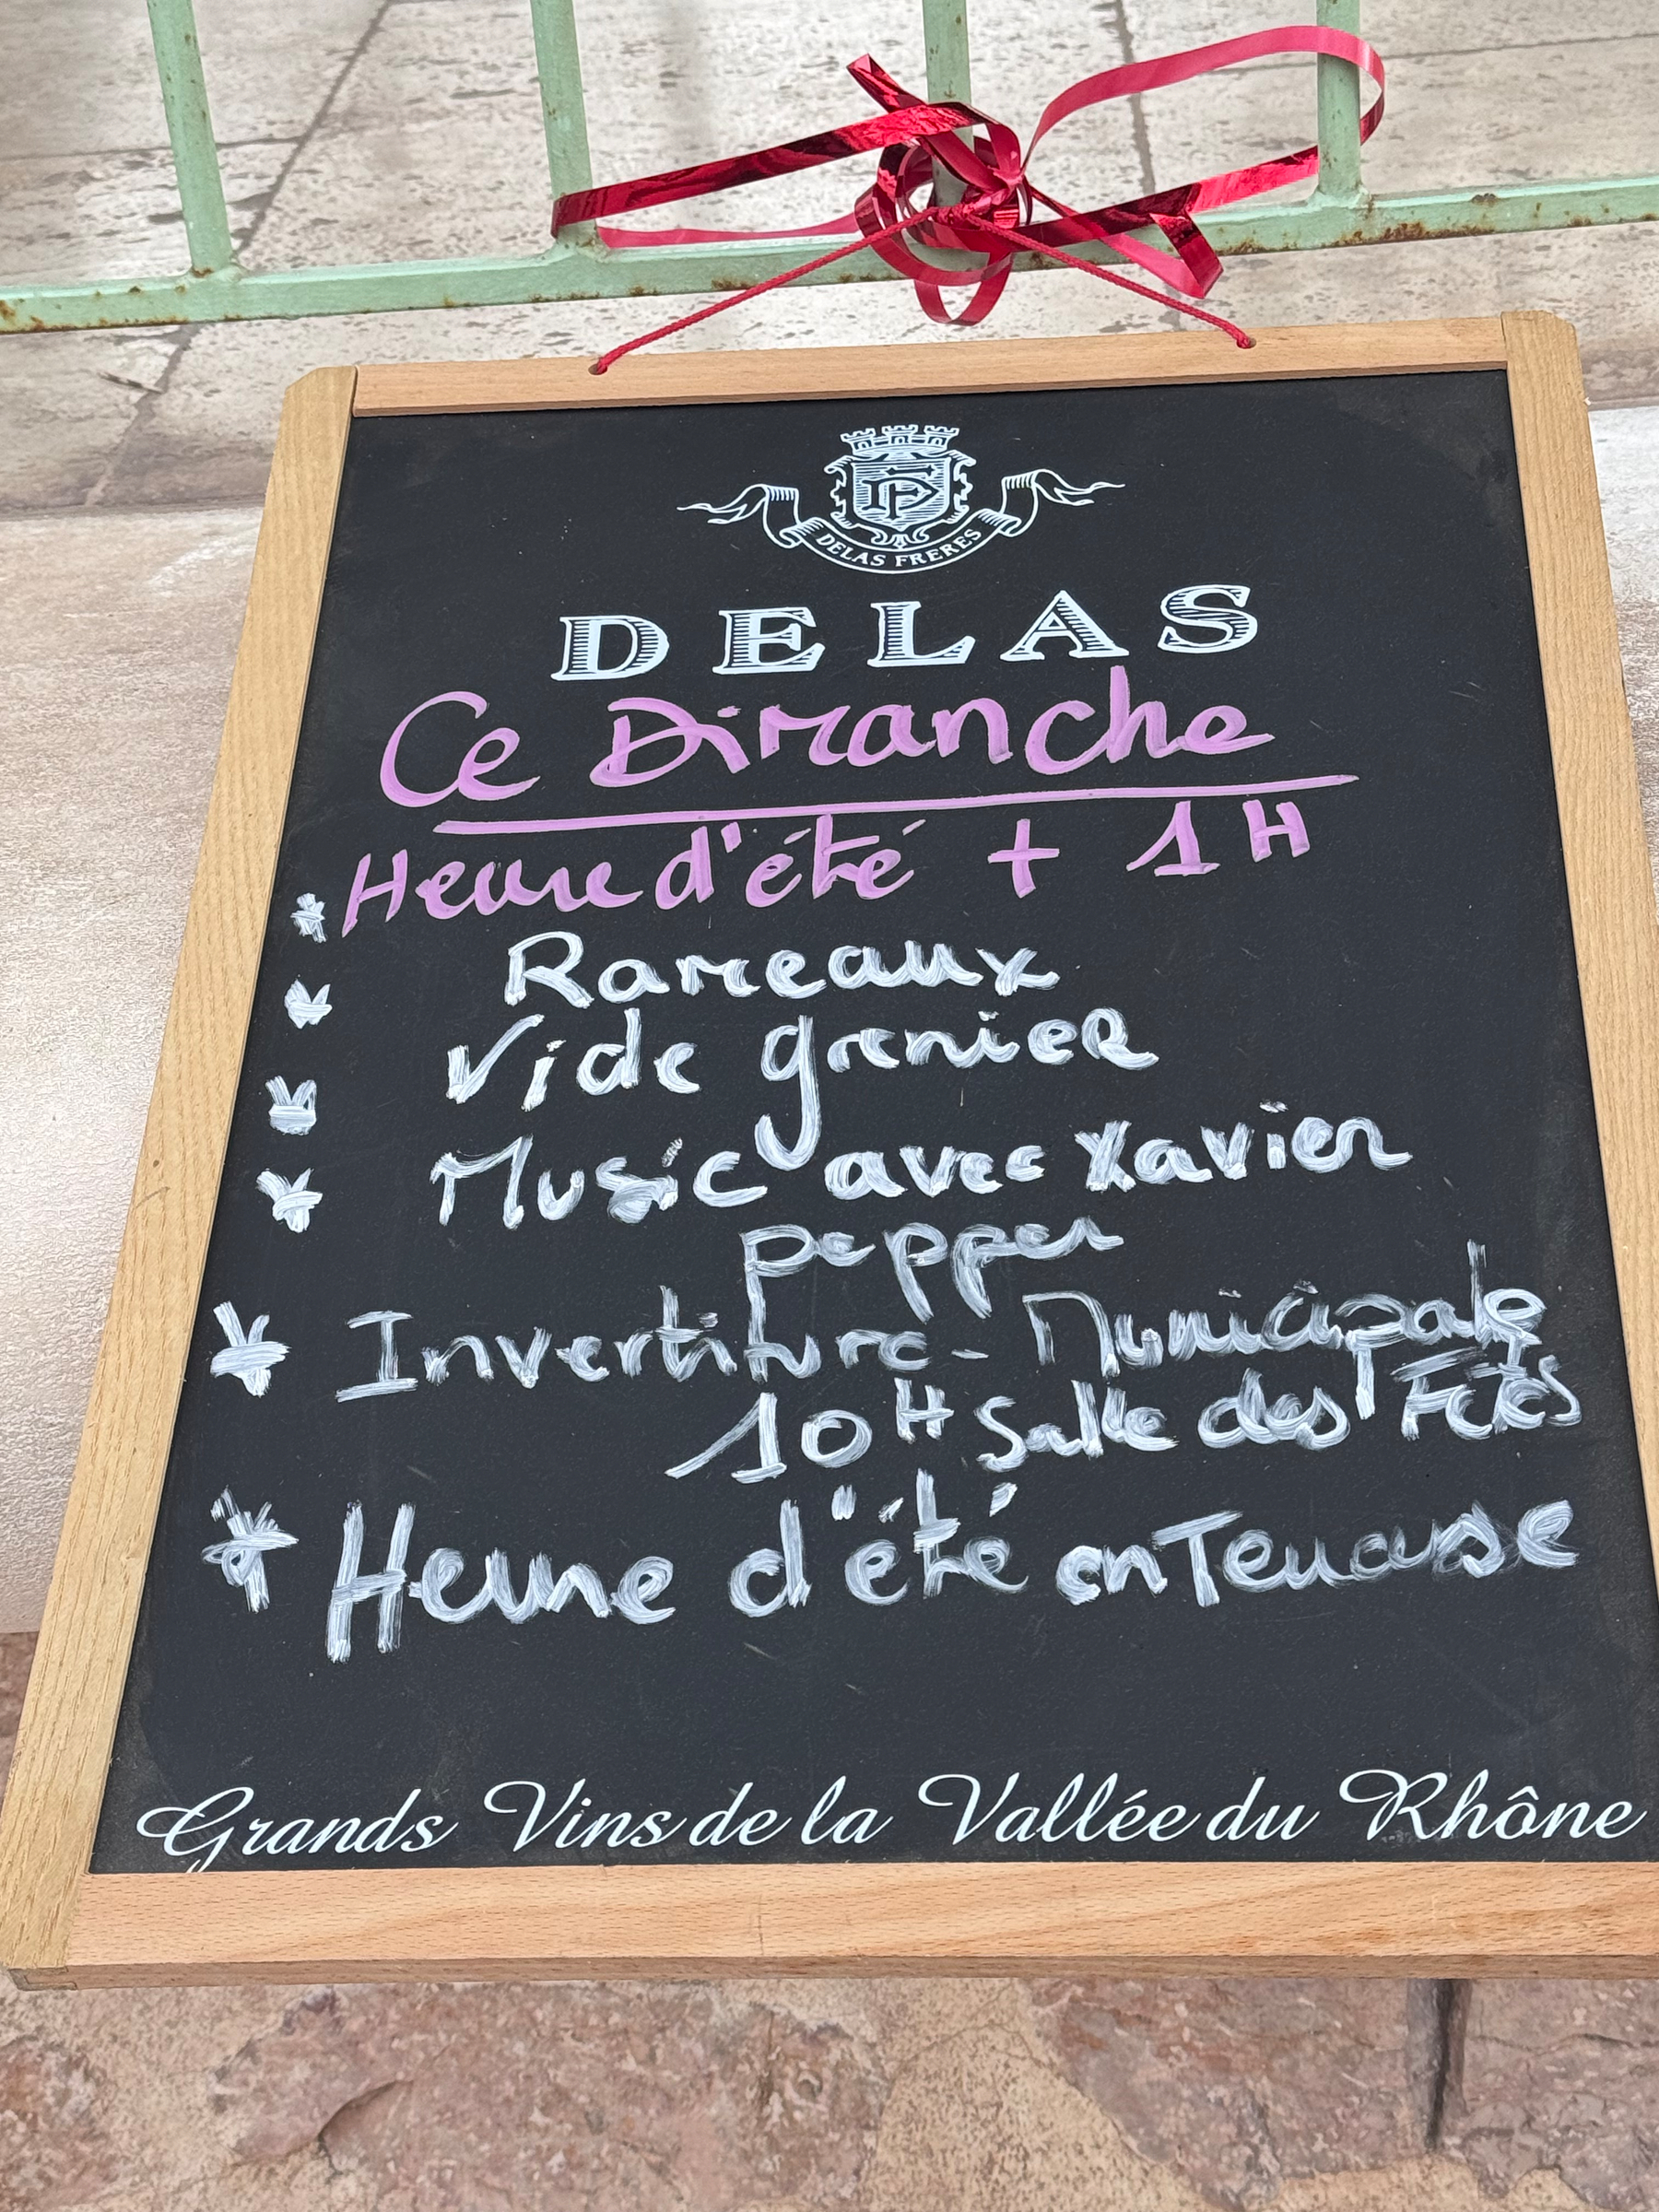 DF
DELAS FRERES
DELAS
Ce Dimanche
* Heure d'été + 1H
* Rameaux
* Vide grenier
* Music avec Xavier
pepper
* Invertiture - Municipale
10H Salle des Fêtes
* Heure d'été en Terrasse
Grands Vins de la Vallée du Rhône